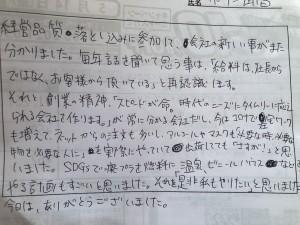 経営品質の落とし込みに参加して、会社の新しい事がまた
分かりました。毎年話を聞いて思う事は、「給料は、社長から
ではなく、お客様から頂いている」と再認識します。
それと、創業の精神、「スピードが命。時代のニーズにタイムリーに応え
られる会社で作ります。」が常に分かる会社だし、今はコロナで 在宅ワーク
も増えて、ネットからの注文も多いし、アルコールやマスクも必要な時、必要な
物を必要な人に」を実際にやっていて 出荷してても「さすが!」と思
いました。SDGsで、廃プラを燃料に「温泉、ビニールハウス などを
やる計画もすごいと思いました。それを是非私もやりたい」と思いました
今日は、ありがとうございました。